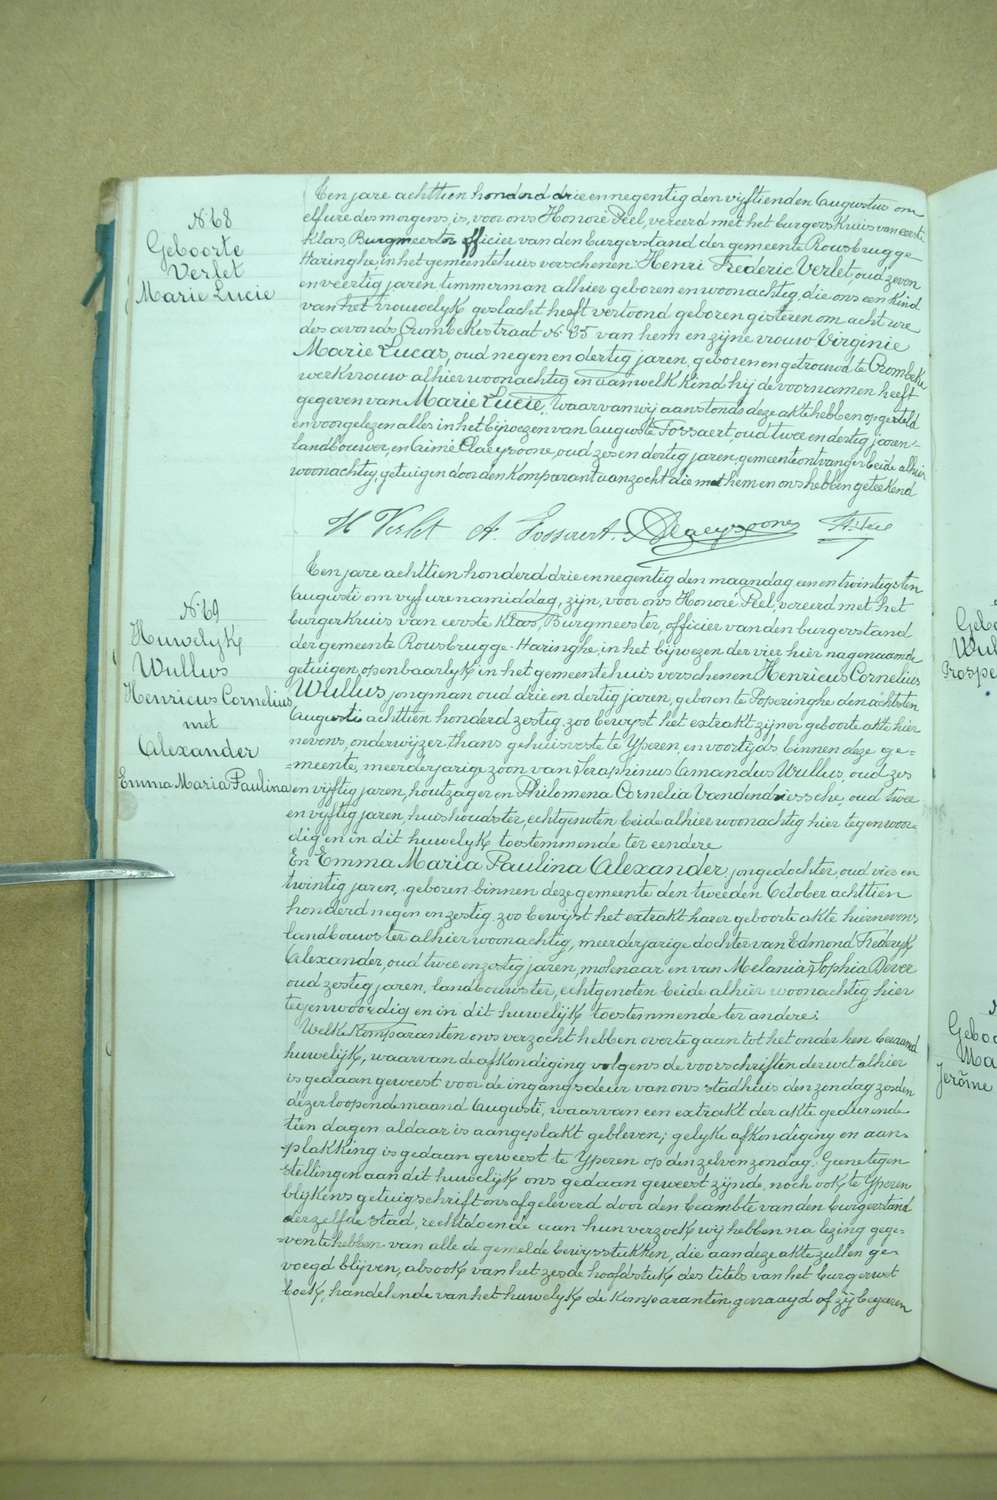 N.68
Geboorte
Verlet
Marie Lucie
Ten jare achttien honderd drie en negentig den vijftienden Augustus om
elf ure des morgens, is, voor ons Honoré Peel, vereerd met het burgers Kruis van eerste
Klas, Burgmeester officier van den burgerstand der gemeente Rousbrugge-
Haringhe, in het gemeentehuis verschenen Henri Frederic Verlet, oud zeven
en veertig jaren timmerman alhier geboren en woonachtig, die ons een kind
van het vrouwelyk geslacht heeft vertoond geboren gisteren om acht ure
des avonds Crombekestraat N. 35 van hem en zijne vrouw Virginie
Marie Lucas, oud negen en dertig jaren, geboren en getrouwd te Crombeke
werkvrouw alhier woonachtig en aan welk kind hij de voornamen heeft
gegeven van Marie Lucie, Waarvan wij aanstonds deze akte hebben opgesteld
en voorgelezen alles in het bijwezen van Auguste Fossaert, oud twee en dertig jaren
landbouwer, en Aimé Claeysoone, oud zes en dertig jaren, gemeenteontvanger beide alhier
woonachtig, getuigen door den Komparant aanzocht die met hem en ons hebben geteekend
H Verlet A. Fossaert. A Claeysoone H. Peel
N.69
Huwelyk
Wullus
Henricus Cornelius
met
Alexander
Emma Maria Paulina
Ten jare achttien honderd drie en negentig den maandag een en twintigsten
Augusti om vyf ure namiddag, zijn, voor ons Honoré Peel, vereerd met het
burgerkruis van eerste Klas, Burgmeester, officier van den burgerstand
der gemeente Rousbrugge-Haringhe, in het bijwezen der vier hier nagenaemde
getuigen, openbaarlyk in het gemeentehuis verschenen Henricus Cornelius
Wullus, jongman oud drie en dertig jaren, geboren te Poperinghe den achtsten
Augusti achttien honderd zestig, zoo bewyst het extrakt zijner geboorte akte hier
nevens, onderwijzer thans gehuisveste te Yperen, en voortijds binnen deze ge=
=meente, meerderjarige zoon van Seraphinus Amandus Wullus, oud zes
en vijftig jaren, houtzager en Philomena Cornelia Vandendriessche, oud twee
en vyftig jaren, huishoudster, echtgenoten beide alhier woonachtig hier tegenwoor-
dig en in dit huwelyk toestemmende ter eendere
En Emma Maria Paulina Alexander, jongedochter, oud vier en
twintig jaren, geboren binnen deze gemeente den tweeden October achttien
honderd negen en zestig, zoo bewyst het extrakt harer geboorte akte hiernevens,
landbouwster alhier woonachtig, meerderjarige dochter van Edmond Frederyk
Alexander, oud twee en zestig jaren, molenaar en van Melania Sophia Dever
oud zestig jaren, landbouwster, echtgenoten beide alhier woonachtig hier
tegenwoordig en in dit huwelijk toestemmende ter andere:
Welke Komparanten ons verzocht hebben over te gaan tot het onder hen beraamd
huwelijk, waarvan de afkondiging volgens de voorschriften der wet alhier
is gedaan geweest voor de ingangsdeur van ons stadhuis den zondag zesden
dezer loopende maand Augusti, waarvan een extrakt der akte gedurende
tien dagen aldaar is aangeplakt gebleven; gelyke afkondiging en aan-
-plakking is gedaan geweest te Yperen op denzelven zondag. Geene tegen
-stellingen aan dit huwelijk ons gedaan geweest zijnde, noch ook te Yperen
blijkens getuigschrift ons afgeleverd door den beambte van den burgerstand
derzelfde stad, rechtdoende aan hun verzoek wij hebben na lezing gege-
=ven te hebben van alle de gemelde bewysstukken, die aan deze akte zullen ge-
voegd blijven, alsook van het zesde hoofdstuk des titels van het burgerwet
boek, handelende van het huwelyk de Komparanten gevraagd of zij begeeren
Gebo
Wul
Prospe
Geboo
Ma
Jerôme